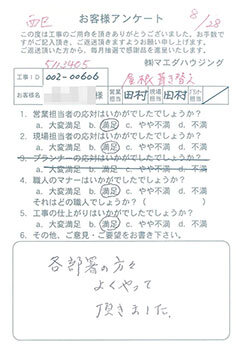 西区
お客様アンケート
8/28
この度は工事のご用命を頂きありがとうございました。お手数で
すがご記入頂き、ご返送頂きますようお願い申し上げます。
ご返送頂いた方から、毎月抽選で感謝品を進呈致します。
5112405
㈱マエダハウジング
工事ID 002-00606
屋根葺き替え
お客様名 様 営業担当 田村 現場担当 田村
1. 営業担当者の応対はいかがでしたでしょうか?
a. 大変満足 b. 満足 c. やや不満 d. 不満
2. 現場担当者の応対はいかがでしたでしょうか?
a. 大変満足 b. 満足 c. やや不満 d. 不満
3. プランナーの応対はいかがでしたでしょうか?
a. 大変満足 b. 満足 c. やや不満 d. 不満
4. 職人のマナーはいかがでしたでしょうか?
a. 大変満足 b. 満足 c. やや不満 d. 不満
それはどの職人でしょうか?( )
5. 工事の仕上がりはいかがでしたでしょうか?
a. 大変満足 b. 満足 c. やや不満 d. 不満
6. その他、ご意見・ご要望をお書き下さい。
各部署の方々
よくやって
頂きました。